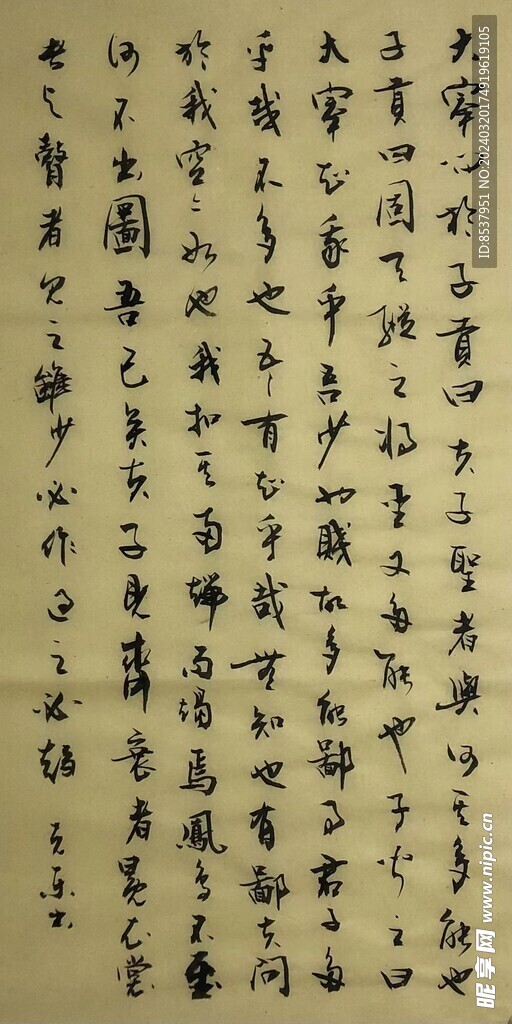 大宰问於子貢曰夫子聖者與何其多能也
子貢曰固天縱之将聖又多能也子聞之曰
大宰知我乎吾少也賤故多能鄙事君子多
乎哉不多也吾有知乎哉無知也有鄙夫問
於我空々如也我扣其兩端而竭焉鳳鳥不至
河不出圖吾已矣夫子見齊衰者冕衣裳
者与瞽者見之雖少必作過之必趨 書
ID:8537951 NO:20240320174919619105
昵享网 www.nipic.cn